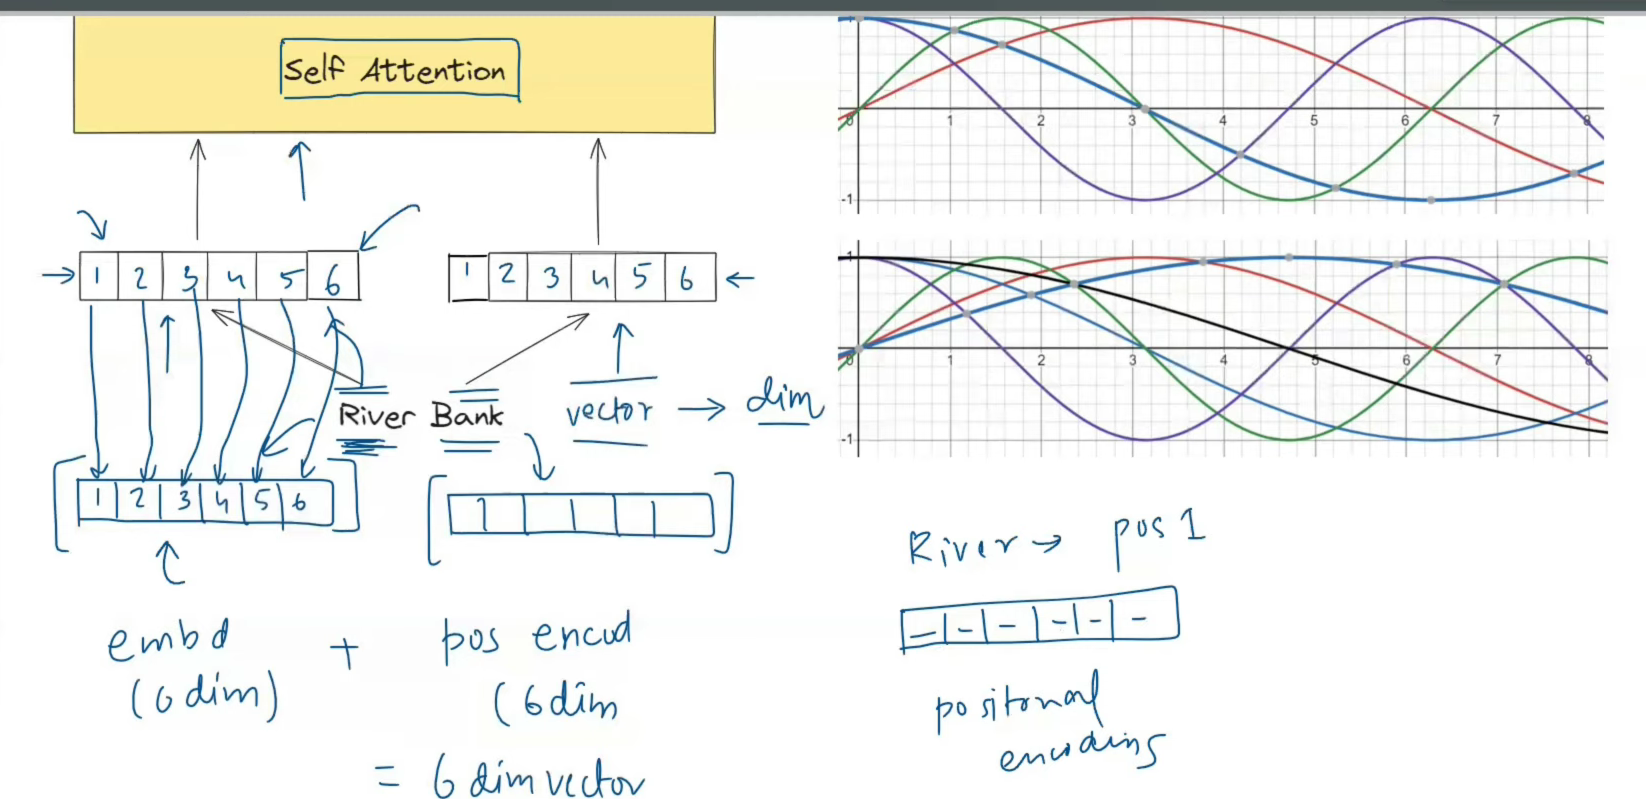 Self Attention
1 2 3 4 5 6
1 2 3 4 5 6
River Bank
vector → dim
1 2 3 4 5 6
embd + pos encod
(6 dim) (6 dim
= 6 dim vector
1
0 1 2 3 4 5 6 7 8
-1
1
0 1 2 3 4 5 6 7 8
-1
River → pos 1
positonal
encoding